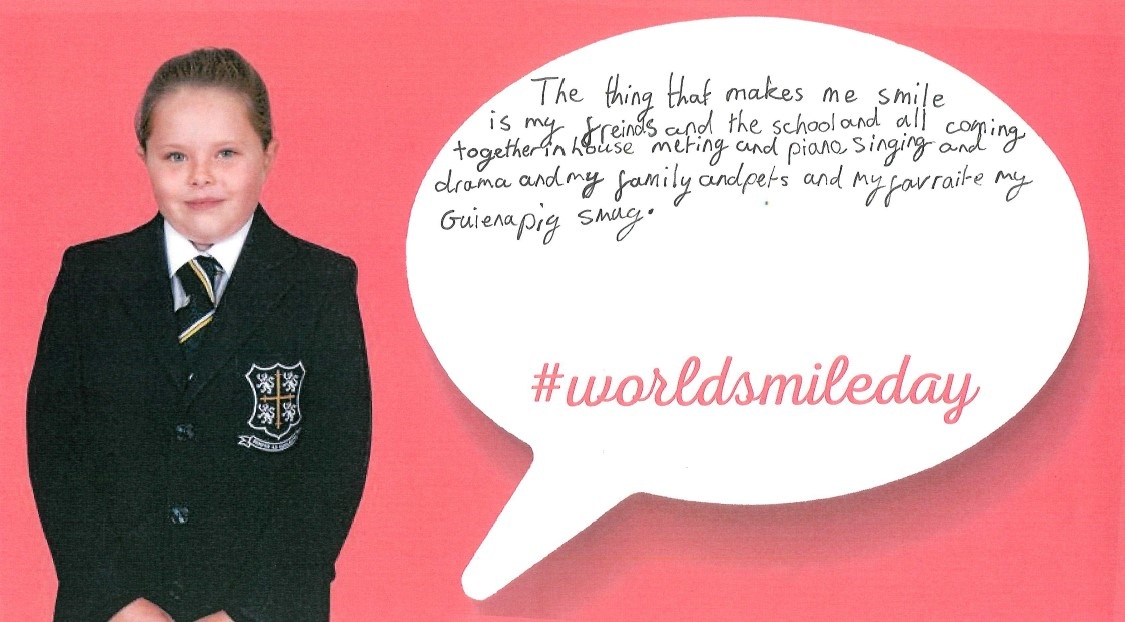 The thing that makes me smile
is my freinds and the school and all coming
together in house meting and piano singing and
drama and my family and pets and my favraite my
Guienapig smug.
#worldsmileday